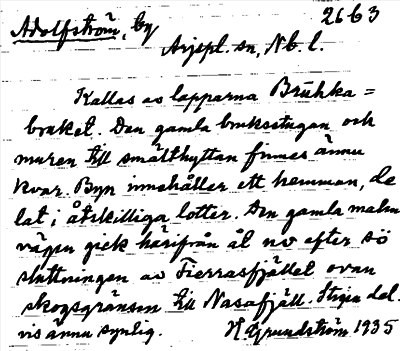 2663
Adolfström, by
Arjepl. sn, Nb. l.
Kallas av lapparna Brühka =
bruket. Den gamla bruksstugan och
muren till smälthyttan finnes ännu
kvar. Byn innehåller ett hemman, de
lat i åtskilliga lotter. Den gamla malm
vägen gick härifrån åt nv efter sö
sluttningen av Tierrasfjället ovan
skogsgränsen till Nasafjäll. Stigen del.
vis ännu synlig. H Grundström 1935